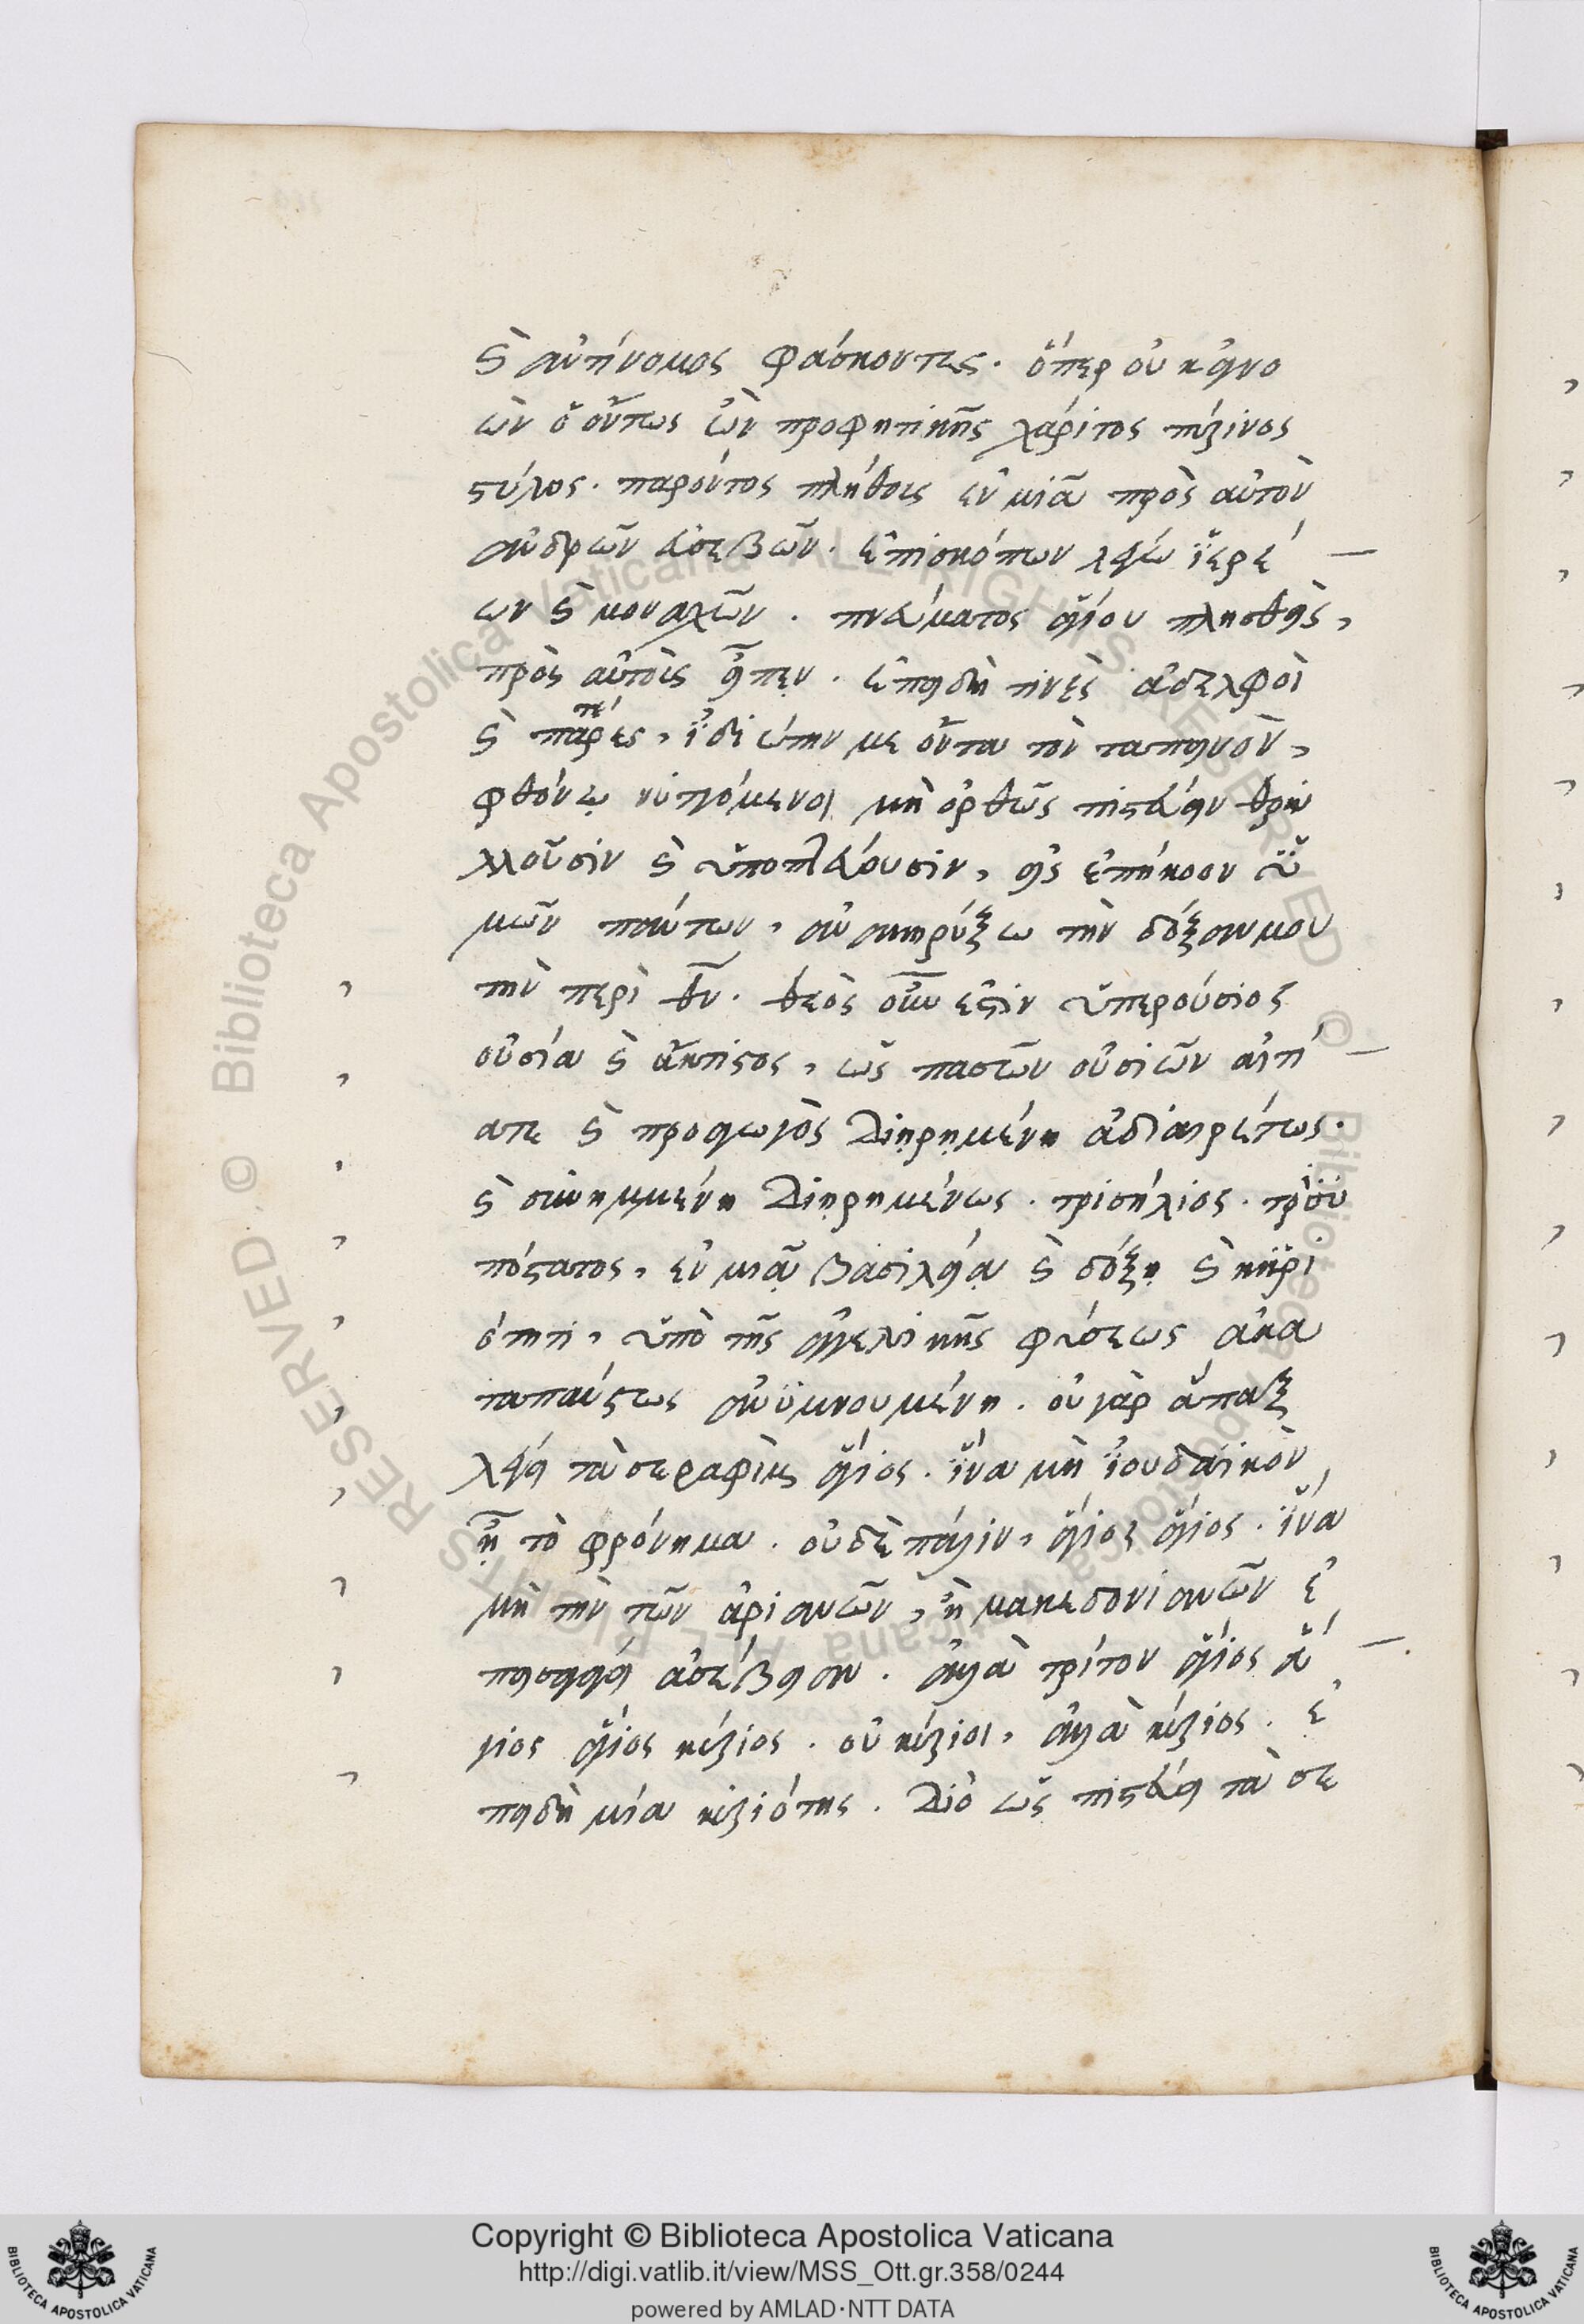 καὶ ἀντίνομος φάσκοντες. ὅπερ οὐκ ἀγνο
ῶν ὁ ὄντως ὢν προφητικῆς χάριτος πύρινος
στύλος. παρόντος πλήθους ἐν μιᾷ πρὸς αὐτὸν
ἀνδρῶν εὐσεβῶν. ἐπισκόπων λέγω ἱερέ
ων καὶ μοναχῶν. πνεύματος ἁγίου πλησθεὶς,
πρὸς αὐτοὺς εἶπεν. ἐπειδὴ τινὲς ἀδελφοὶ
καὶ πατέρες, ἰδιώτην με ὄντα τὸν ταπεινὸν,
φθόνῳ νυττόμενοι μὴ ὀρθῶς πιστεύειν θρυ
λλοῦσιν καὶ ὑποπτεύουσιν, εἰς ἐπήκοον ὑ
μῶν πάντων, ἀνακηρύξω τὴν δόξαν μου
τὴν περὶ θν. θεὸς οὖν ἐστιν ὑπερούσιος
οὐσία καὶ ἄκτιστος, ὡς πασῶν οὐσιῶν αἰτί
α τε καὶ προαγωγὸς διῃρημένη ἀδιαιρέτως.
καὶ συνημμένη διῃρημένως. τρισήλιος. τρισυ
πόστατος, ἐν μιᾷ βασιλείᾳ καὶ δόξῃ καὶ κυρι
ότητι, ὑπὸ τῆς ἀγγελικῆς φύσεως ἀκα
ταπαύστως ἀνυμνουμένη. οὐ γὰρ ἅπαξ
λέγει τὰ σεραφὶμ ἅγιος. ἵνα μὴ ἰουδαϊκὸν
ᾖ τὸ φρόνημα. οὐδὲ πάλιν, ἅγιος ἅγιος. ἵνα
μὴ τὴν τῶν ἀριανῶν, ἢ μακεδονιανῶν ἐ
πεισάγει ἀσέβειαν. ἀλλὰ τρίτον ἅγιος ἅ
γιος ἅγιος κύριος. οὐ κύριοι, ἀλλὰ κύριος. ἐ
πειδὴ μία κυριότης. Διὸ ὡς πιστεύει τὰ σε